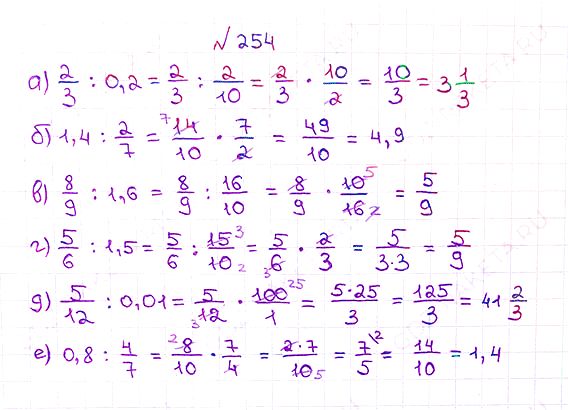 № 254
а) 2/3 : 0,2 = 2/3 : 2/10 = 2/3 · 10/2 = 10/3 = 3 1/3
б) 1,4 : 2/7 = 7 14/10 · 7/2 = 49/10 = 4,9
в) 8/9 : 1,6 = 8/9 : 16/10 = 8/9 · 10 5/16 2 = 5/9
г) 5/6 : 1,5 = 5/6 : 15 3/10 2 = 5/3 6 · 2/3 = 5/3·3 = 5/9
д) 5/12 : 0,01 = 5/3 12 · 100 25/1 = 5·25/3 = 125/3 = 41 2/3
е) 0,8 : 4/7 = 2 8/10 · 7/4 = 2·7/10 5 = 7 ·2/5 = 14/10 = 1,4